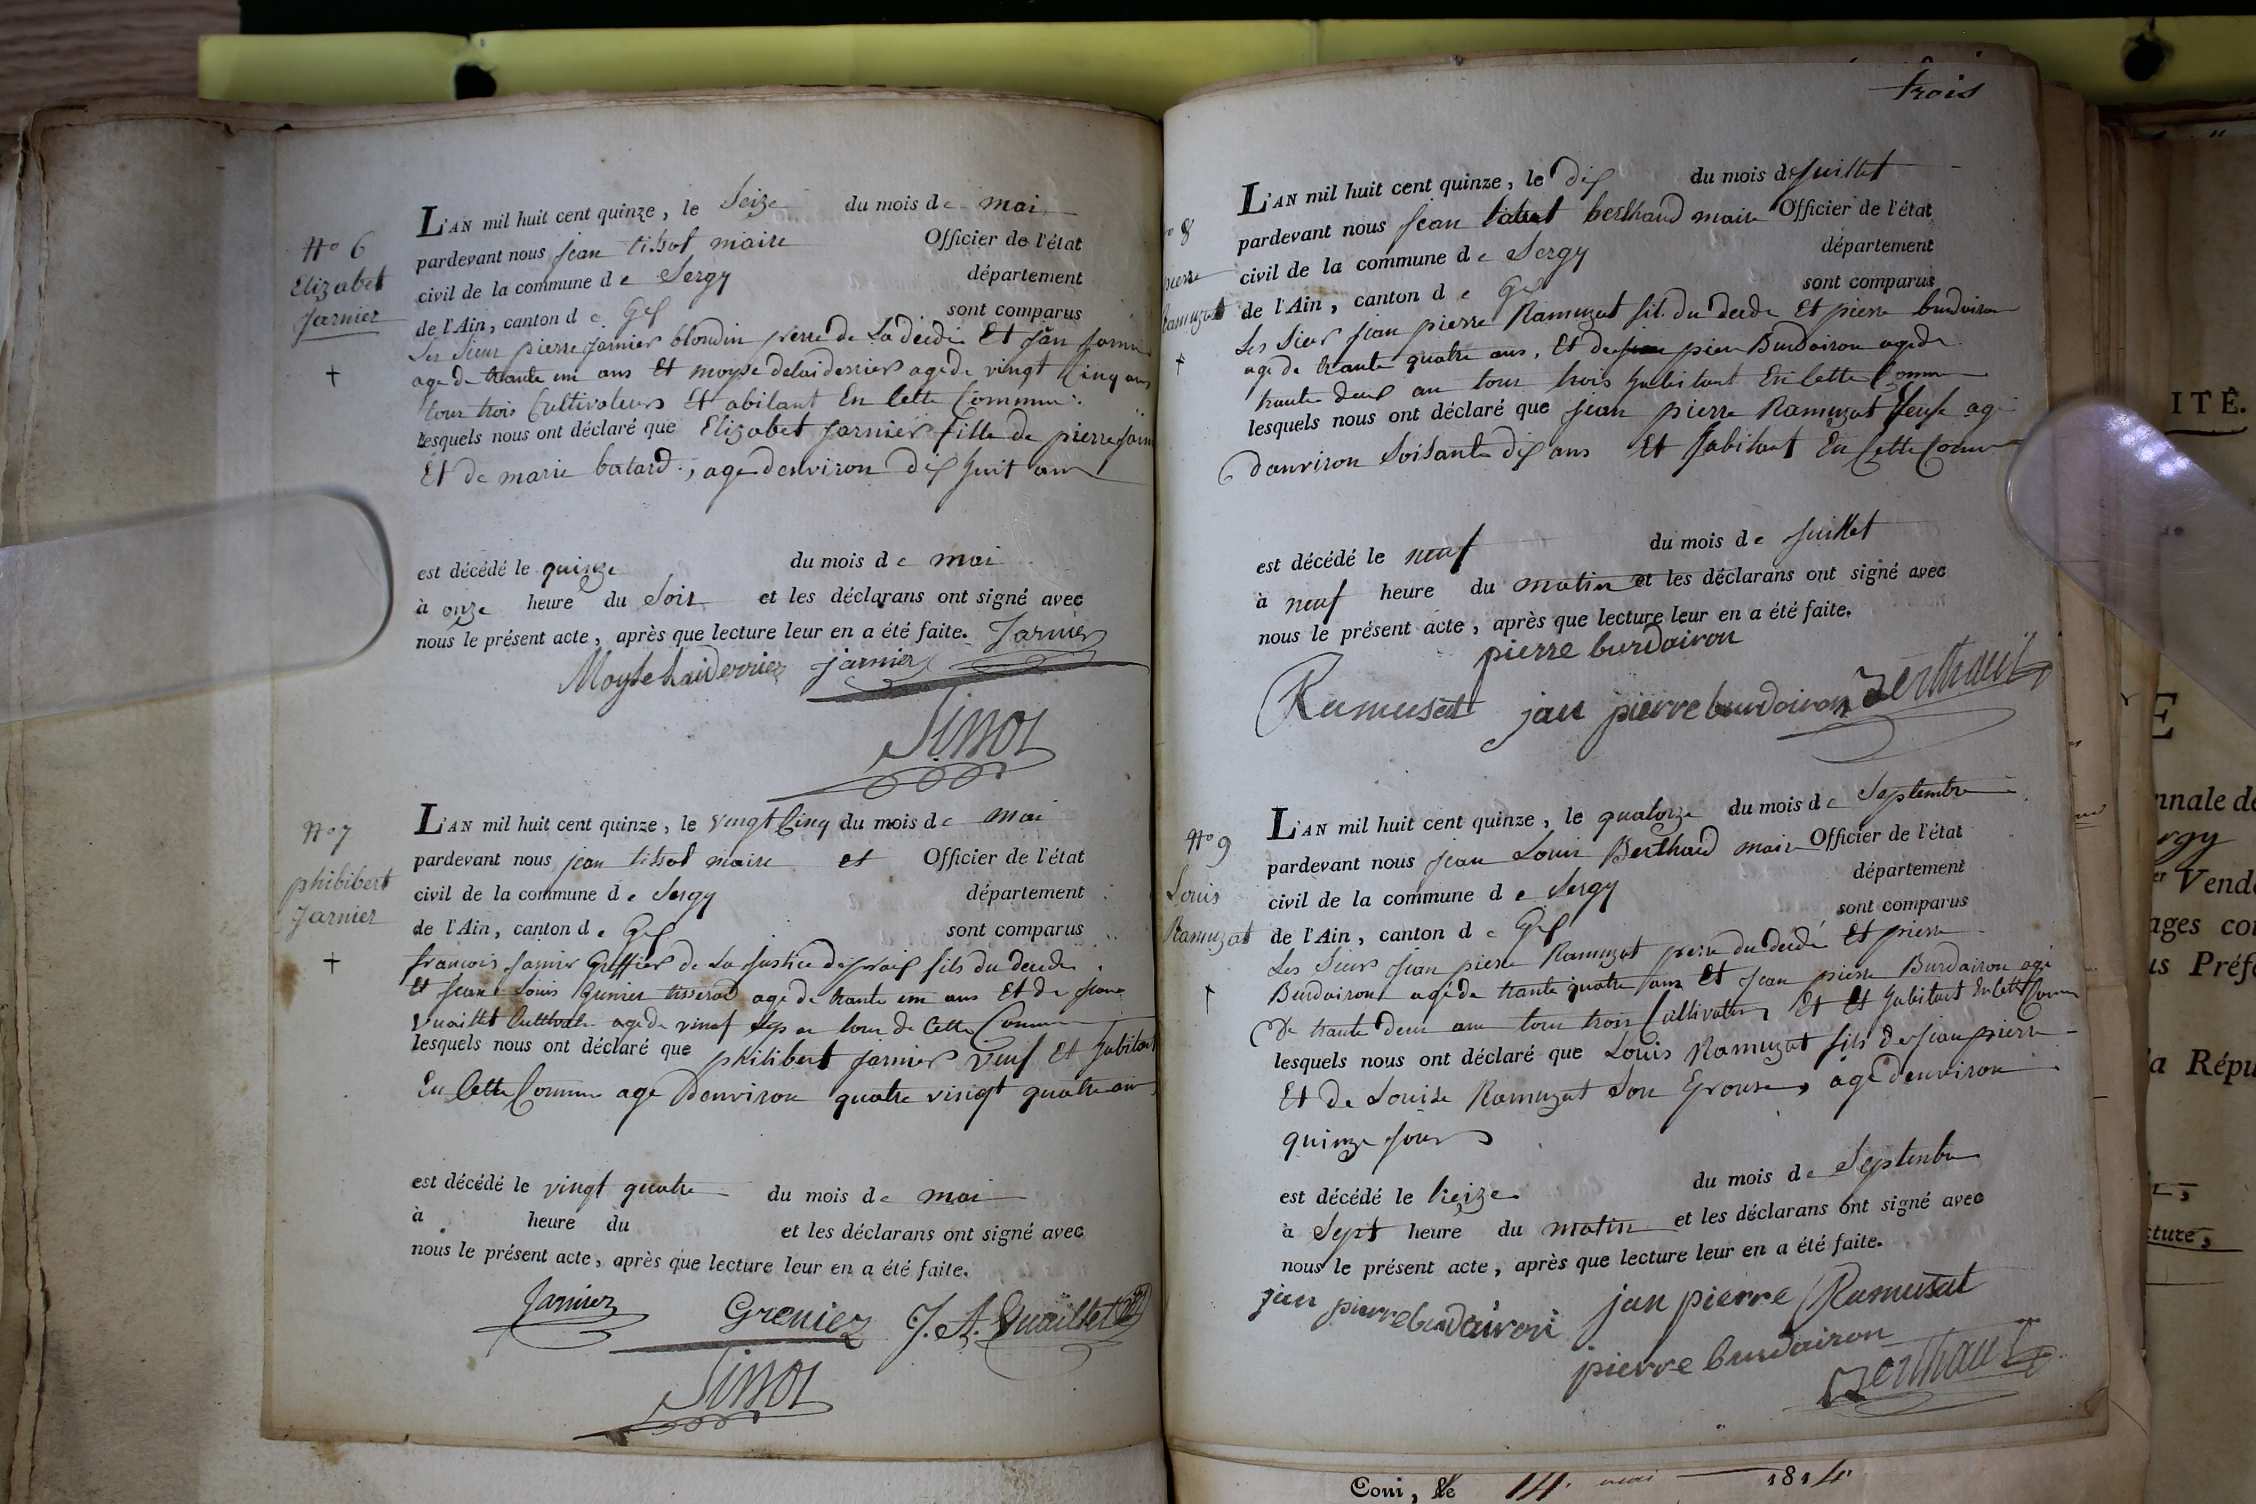 N° 6
Elizabet
Jarnier
L'AN mil huit cent quinze, le Seize du mois de mai
pardevant nous jean tissot maire Officier de l'état
civil de la commune de Sergy département
de l'Ain, canton de Gex sont comparus
Les Sieur pierre jarnier blondin frere de La décdé Et jean jarnier
age de trante un ans Et moyse delaiderrier age de vingt Cinq ans
tous trois Cultivateurs Et abitant En Cette Commune
lesquels nous ont déclaré que Elizabet jarnier fille de pierre jarni
Et de marie batard, age denviron dix huit ans
est décédé le quinze du mois de mai
à onze heure du Soir et les déclarans ont signé avec
nous le présent acte, après que lecture leur en a été faite. Jarnier
Moyse Laiderrier jarnier
Tissot
N° 7
philibert
Jarnier
L'AN mil huit cent quinze, le vingt Cinq du mois de mai
pardevant nous jean tissot maire et Officier de l'état
civil de la commune de Sergy département
de l'Ain, canton de Gex sont comparus
françois jarnier Greffier de La justice de paix fils du decede
Et jean Louis Grenier tisserad age de trante un ans Et de jean
Vuaillet Cultivat. age de vingt sep an tous de Cette Commune
lesquels nous ont déclaré que philibert jarnier veuf Et habitant
En Cette Commune age Denviron quatre vingt quatre ans
est décédé le vingt quatre du mois de mai
à heure du et les déclarans ont signé avec
nous le présent acte, après que lecture leur en a été faite.
Jarnier Grenier J. A. Vuaillet
Tissot
trois
N° 8
pierre
Ramuzat
L'AN mil huit cent quinze, le dix du mois de juillet
pardevant nous jean berthaud maire Officier de l'état
civil de la commune de Sergy département
de l'Ain, canton de Gex sont comparus
Les Sieur jean pierre Ramuzat fils du decde Et pierre burdairon
age de trante quatre ans, Et de pierre Burdairon age de
trante deux an tous trois habitant En Cette Commune
lesquels nous ont déclaré que jean pierre Ramuzat Veuf agé
d'anviron Soisante dix ans Et habitant En Cette Comune
est décédé le neuf du mois de juillet
à neuf heure du matin et les déclarans ont signé avec
nous le présent acte, après que lecture leur en a été faite.
pierre burdairon
Ramusat jan pierre burdairon Berthaud
N° 9
Louis
Ramuzat
L'AN mil huit cent quinze, le quatorze du mois de Septembre
pardevant nous jean Louis Berthaud maire Officier de l'état
civil de la commune de Sergy département
de l'Ain, canton de Gex sont comparus
Les Sieurs jean pierre Ramuzat perre du décdé Et pierre
Burdairon agé de trante quatre ans Et jean pierre Burdairon agé
De trante deux ans tous trois Cultivateurs Et Et habitant En Cette Comune
lesquels nous ont déclaré que Louis Ramuzat fils de jean pierre
Et de Louise Ramuzat Son Epouse, agé denviron
quinze jours
est décédé le treize du mois de Septembre
à Sept heure du matin et les déclarans ont signé avec
nous le présent acte, après que lecture leur en a été faite.
jan pierre burdairon jan pierre Ramusat
pierre burdairon
Berthaud
Coni, le 14 mai 1814
ITÉ.
E
nnale de
rgy
er Vende
ages co
us Préfe
la Répu
cture,